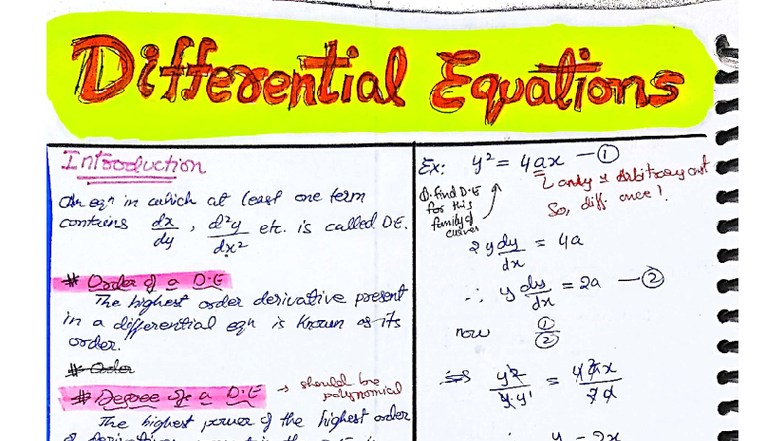 Differential Equations
Introduction
An eqn in which at least one term
contains dx/dy , d²y/dx² etc. is called D.E.
# Order of a D.E
The highest order derivative present
in a differential eqn is known as its
order.
# Order
# Degree of a D.E → should be
polynomial
The highest power of the highest order
Ex: y² = 4ax —①
only 1 arbitrary const
So, diff. once!
Q. find D.E
for this
family of
curves
2y dy/dx = 4a
∴ y dy/dx = 2a —②
now ①/②
⇒ y²/y·y' = 4ax/2a
y = 2x